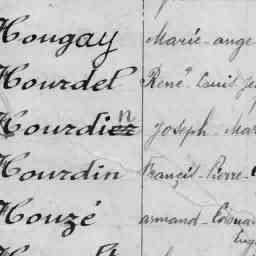 Hougay Marie-ange
Hourdel René Louis
Hourdin Joseph
Hourdin François-Pierre-
Houzé armand-